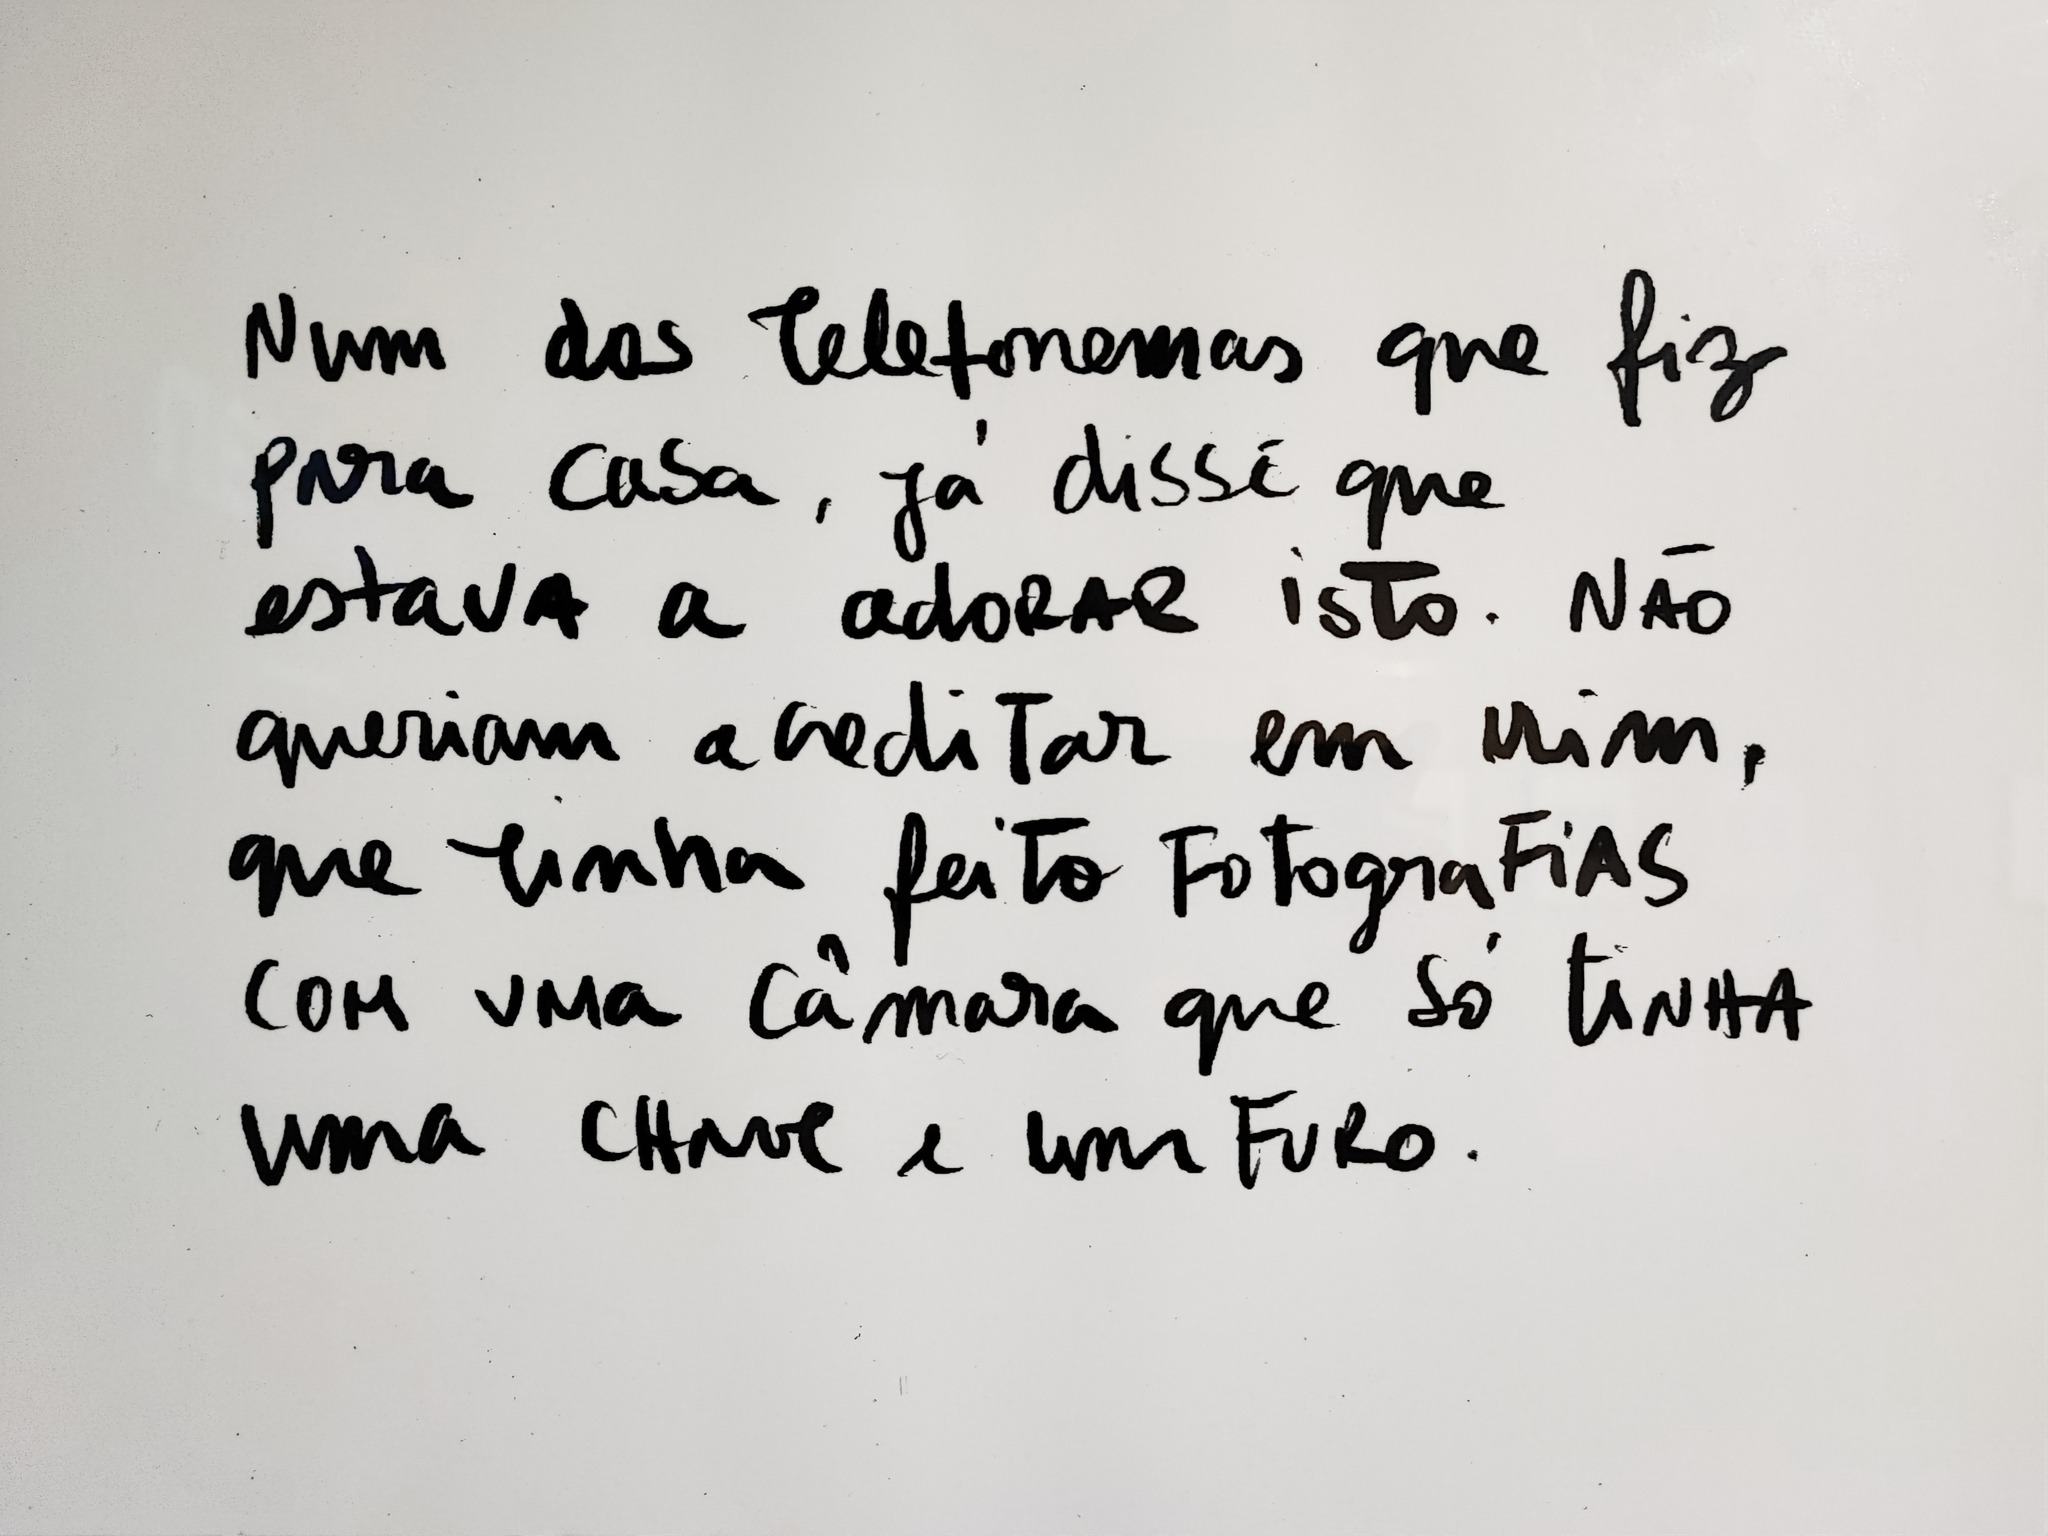 Num dos telefonemas que fiz
para casa, já disse que
estava a adorar isto. Não
queriam acreditar em mim,
que tinha feito fotografias
com uma câmara que só tinha
uma chave e um furo.